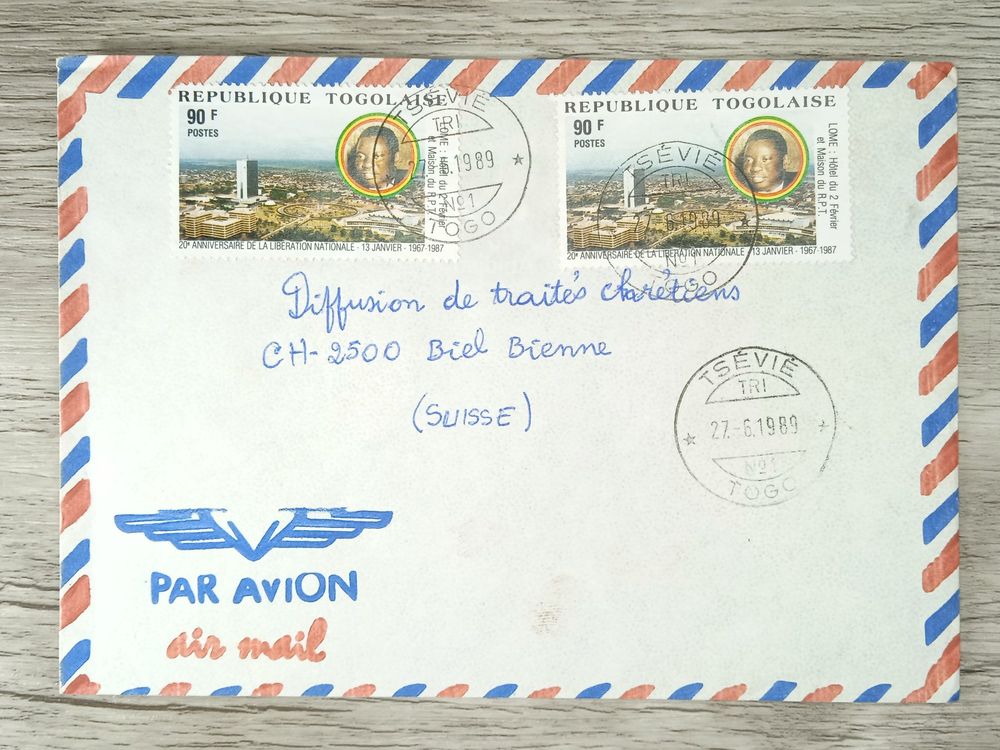 REPUBLIQUE TOGOLAISE
90 F
POSTES
LOME : Hôtel du 2 Février
et Maison du R.P.T.
20e ANNIVERSAIRE DE LA LIBÉRATION NATIONALE - 13 JANVIER - 1967-1987
TSÉVIÉ
TRI
27.-6.1989
No1
TOGO
REPUBLIQUE TOGOLAISE
90 F
POSTES
LOME : Hôtel du 2 Février
et Maison du R.P.T.
20e ANNIVERSAIRE DE LA LIBÉRATION NATIONALE - 13 JANVIER - 1967-1987
TSÉVIÉ
TRI
27.-6.1989
No1
TOGO
Diffusion de traités chrétiens
CH-2500 Biel Bienne
(SUISSE)
TSÉVIÉ
TRI
27.-6.1989
No1
TOGO
PAR AVION
air mail